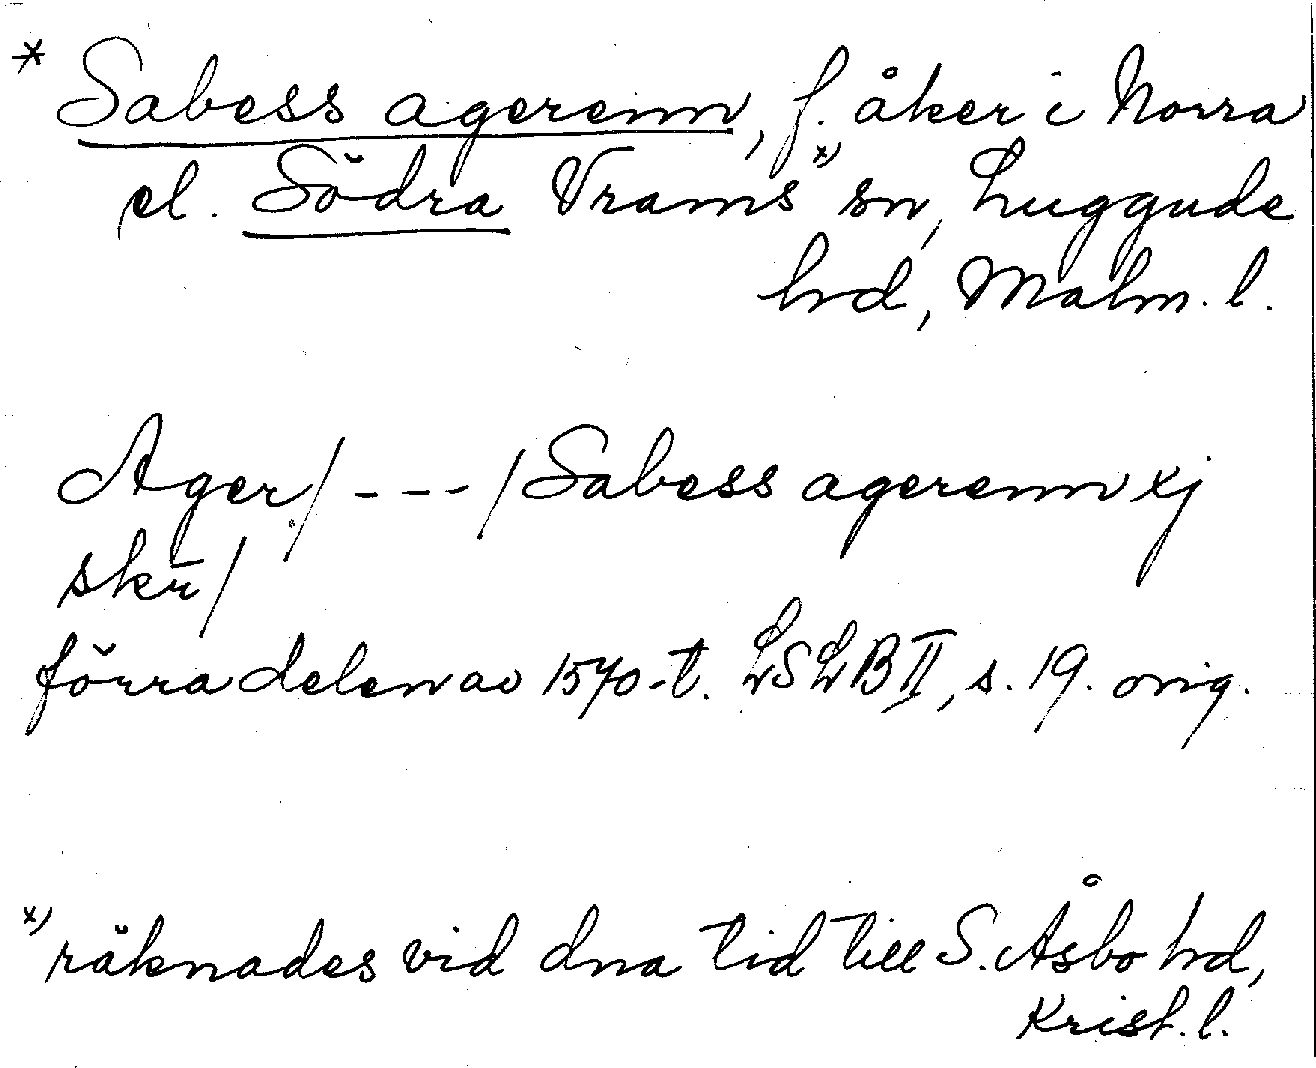 * Sabess agerenn, f. åker i Norra
el. Södra Vrams x) sn, Luggude
hd, Malm. l.
Ager/ - - - /Sabess agerenn xj
skr̄/
förra delen av 1570-t. LSLB II, s. 19. orig.
x) räknades vid dna tid till S. Åsbo hd,
Krist. l.